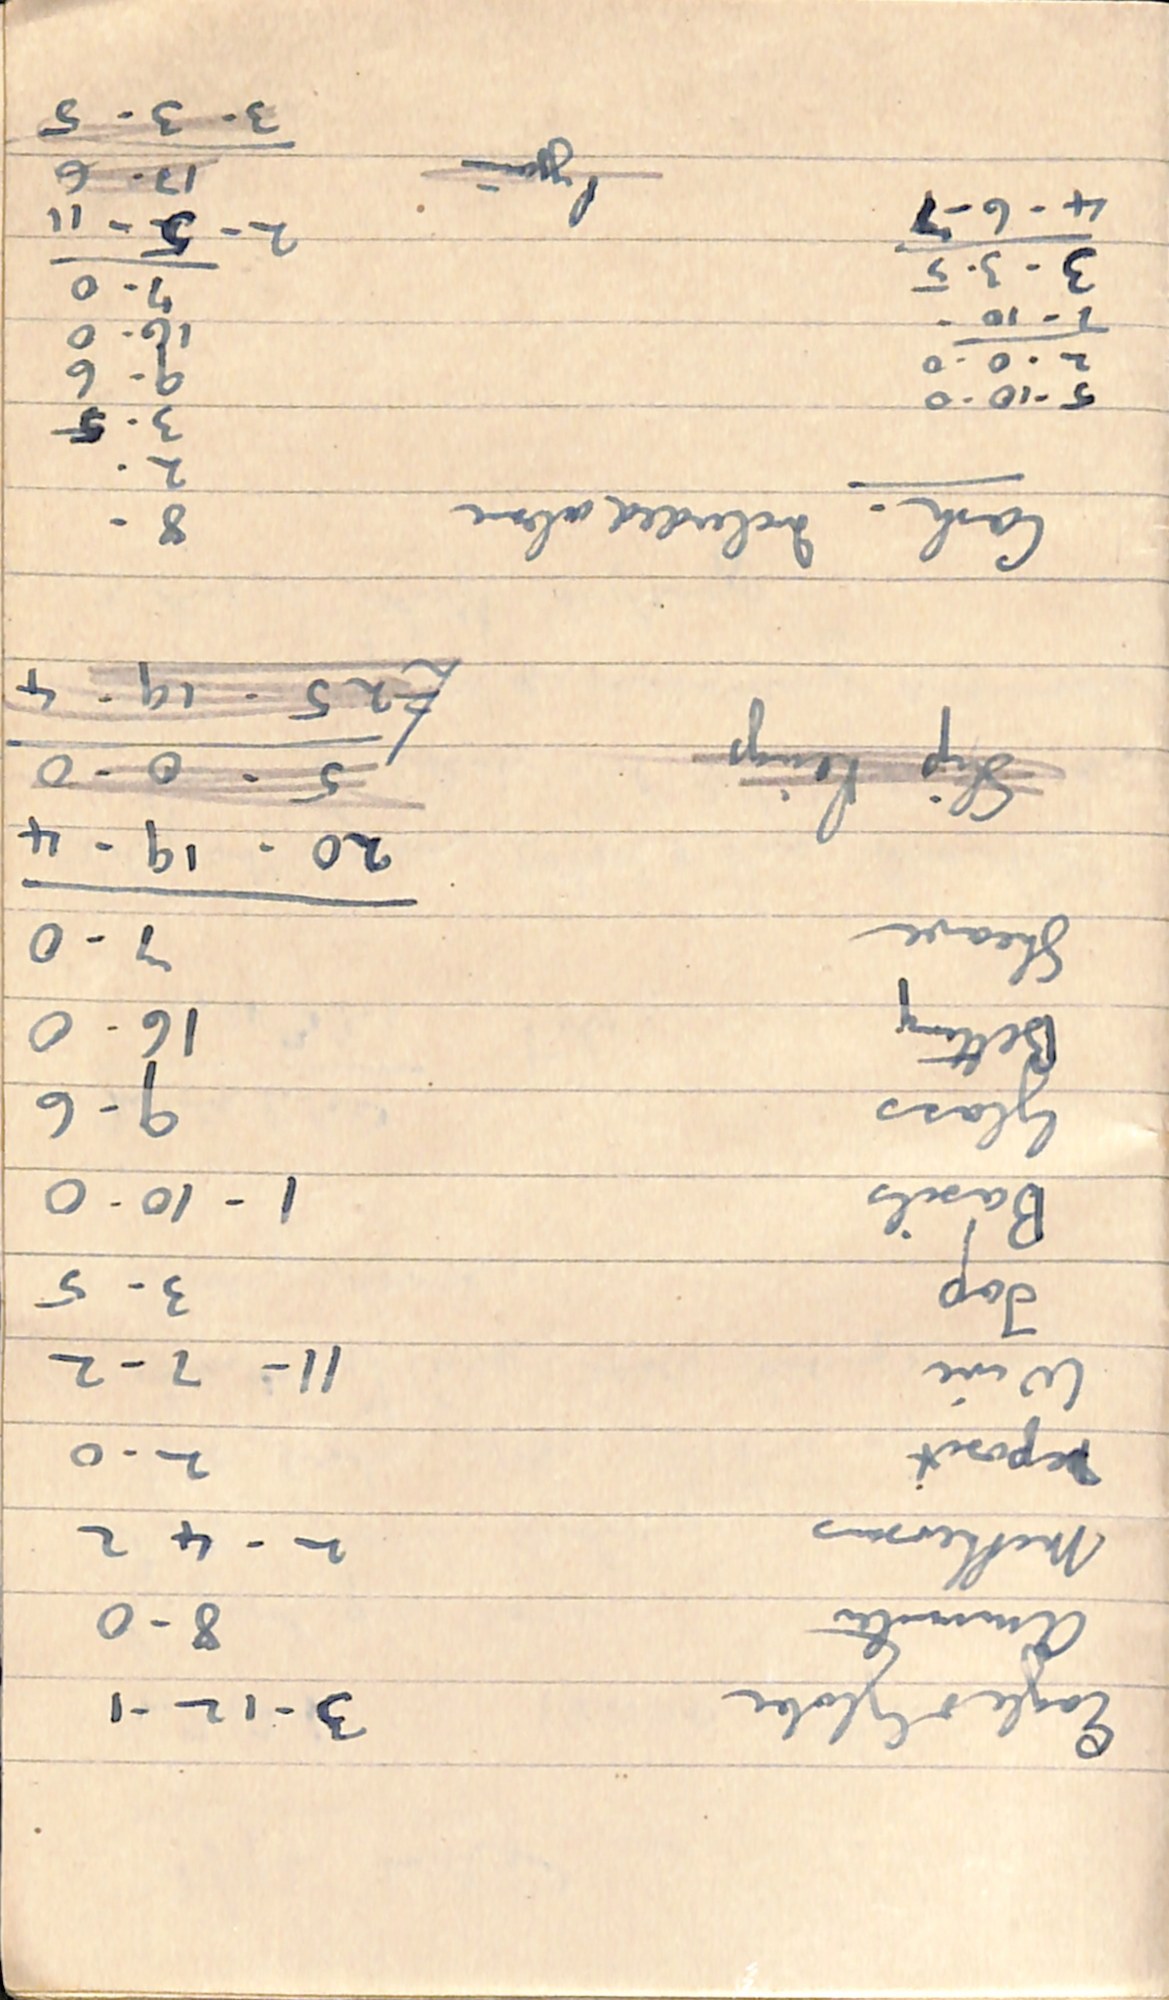 Eagle & Globe 3-12-1
Ammeter 8-0
McPhersons 2-4 2
Deposit 2-0
Wire 11-7-2
Tap 3-5
Basils 1-10-0
Glass 9-6
Belting 16-0
Sheave 7-0
20-19-4
Slip Rings 5-0-0
£25-19-4
Cash - Included above 8 -
2 -
3-5
5-10-0 9-6
2-0-0 16-0
7-10 - 7-0
3-3-5 2-5-11
4-6-7 17-6
3-3-5